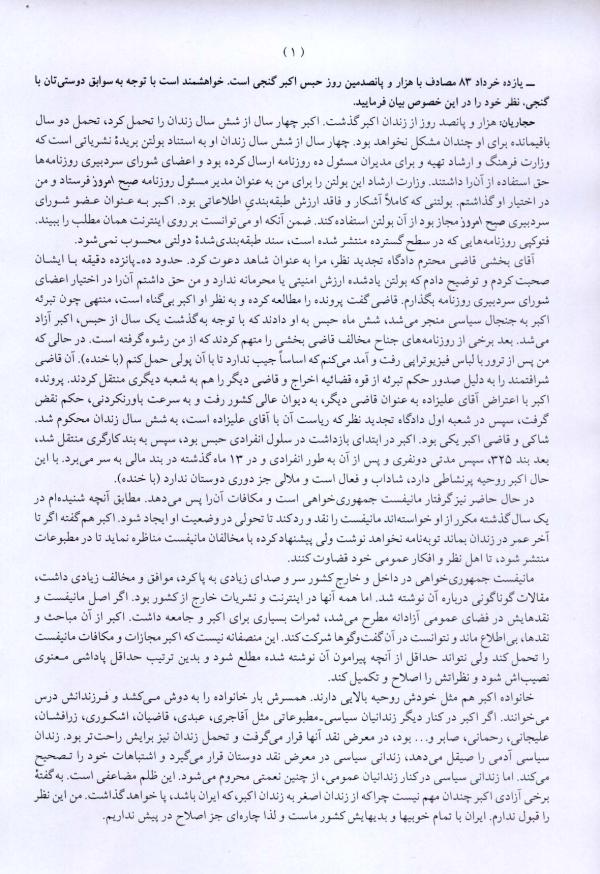 (۱)
ــ یازده خرداد ۸۳ مصادف با هزار و پانصدمین روز حبس اکبر گنجی است. خواهشمند است با توجه به سوابق دوستی‌تان با
گنجی، نظر خود را در این خصوص بیان فرمایید.
حجاریان: هزار و پانصد روز از زندان اکبر گذشت. اکبر چهار سال از شش سال زندان را تحمل کرد، تحمل دو سال
باقیمانده برای او چندان مشکل نخواهد بود. چهار سال از شش سال زندان او به استناد بولتن بریدهٔ نشریاتی است که
وزارت فرهنگ و ارشاد تهیه و برای مدیران مسئول ده روزنامه ارسال کرده بود و اعضای شورای سردبیری روزنامه‌ها
حق استفاده از آن را داشتند. وزارت ارشاد این بولتن را برای من به عنوان مدیر مسئول روزنامه صبح امروز فرستاد و من
در اختیار او گذاشتم. بولتنی که کاملاً آشکار و فاقد ارزش طبقه‌بندیِ اطلاعاتی بود. اکبر به عنوان عضو شورای
سردبیری صبح امروز مجاز بود از آن بولتن استفاده کند. ضمن آنکه او می‌توانست بر روی اینترنت همان مطلب را ببیند.
فتوکپی روزنامه‌هایی که در سطح گسترده منتشر شده است، سند طبقه‌بندی‌شدهٔ دولتی محسوب نمی‌شود.
آقای بخشی قاضی محترم دادگاه تجدید نظر، مرا به عنوان شاهد دعوت کرد. حدود ده‌ـ‌پانزده دقیقه با ایشان
صحبت کردم و توضیح دادم که بولتن یادشده ارزش امنیتی یا محرمانه ندارد و من حق داشتم آن را در اختیار اعضای
شورای سردبیری روزنامه بگذارم. قاضی گفت پرونده را مطالعه کرده و به نظر او اکبر بی‌گناه است، منتهی چون تبرئه
اکبر به جنجال سیاسی منجر می‌شد، شش ماه حبس به او دادند که با توجه به گذشت یک سال از حبس، اکبر آزاد
می‌شد. بعد برخی از روزنامه‌های جناح مخالف قاضی بخشی را متهم کردند که از من رشوه گرفته است. در حالی که
من پس از ترور با لباس فیزیوتراپی رفت و آمد می‌کنم که اساساً جیب ندارد تا با آن پولی حمل کنم (با خنده). آن قاضی
شرافتمند را به دلیل صدور حکم تبرئه از قوه قضائیه اخراج و قاضی دیگر را هم به شعبه دیگری منتقل کردند. پرونده
اکبر با اعتراض آقای علیزاده به عنوان قاضی دیگر، به دیوان عالی کشور رفت و به سرعت باورنکردنی، حکم نقض
گرفت، سپس در شعبه اول دادگاه تجدید نظر که ریاست آن با آقای علیزاده است، به شش سال زندان محکوم شد.
شاکی و قاضی اکبر یکی بود. اکبر در ابتدای بازداشت در سلول انفرادی حبس بود، سپس به بند کارگری منتقل شد،
بعد بند ۳۲۵، سپس مدتی دونفری و پس از آن به طور انفرادی و در ۱۳ ماه گذشته در بند مالی به سر می‌برد. با این
حال اکبر روحیه پرنشاطی دارد، شاداب و فعال است و ملالی جز دوری دوستان ندارد (با خنده).
در حال حاضر نیز گرفتار مانیفست جمهوری‌خواهی است و مکافات آن را پس می‌دهد. مطابق آنچه شنیده‌ام در
یک سال گذشته مکرر از او خواسته‌اند مانیفست را نقد و رد کند تا تحولی در وضعیت او ایجاد شود. اکبر هم گفته اگر تا
آخر عمر در زندان بماند توبه‌نامه نخواهد نوشت ولی پیشنهاد کرده با مخالفان مانیفست مناظره نماید تا در مطبوعات
منتشر شود، تا اهل نظر و افکار عمومی خود قضاوت کنند.
مانیفست جمهوری‌خواهی در داخل و خارج کشور سر و صدای زیادی به پا کرد، موافق و مخالف زیادی داشت،
مقالات گوناگونی درباره آن نوشته شد. اما همه آنها در اینترنت و نشریات خارج از کشور بود. اگر اصل مانیفست و
نقدهایش در فضای عمومی آزادانه مطرح می‌شد، ثمرات بسیاری برای اکبر و جامعه داشت. اکبر از آن مباحث و
نقدها، بی‌اطلاع ماند و نتوانست در آن گفت‌وگوها شرکت کند. این منصفانه نیست که اکبر مجازات و مکافات مانیفست
را تحمل کند ولی نتواند حداقل از آنچه پیرامون آن نوشته شده مطلع شود و بدین ترتیب حداقل پاداشی معنوی
نصیب‌اش شود و نظراتش را اصلاح و تکمیل کند.
خانواده اکبر هم مثل خودش روحیه بالایی دارند. همسرش بار خانواده را به دوش می‌کشد و فرزندانش درس
می‌خوانند. اگر اکبر در کنار دیگر زندانیان سیاسی‌ـ‌مطبوعاتی مثل آقاجری، عبدی، قاضیان، اشکوری، زرافشان،
علیجانی، رحمانی، صابر و... بود، در معرض نقد آنها قرار می‌گرفت و تحمل زندان نیز برایش راحت‌تر بود. زندان
سیاسی آدمی را صیقل می‌دهد، زندانی سیاسی در معرض نقد دوستان قرار می‌گیرد و اشتباهات خود را تصحیح
می‌کند. اما زندانی سیاسی در کنار زندانیان عمومی، از چنین نعمتی محروم می‌شود. این ظلم مضاعفی است. به گفتهٔ
برخی آزادی اکبر چندان مهم نیست چرا که از زندان اصغر به زندان اکبر، که ایران باشد، پا خواهد گذاشت. من این نظر
را قبول ندارم. ایران با تمام خوبیها و بدیهایش کشور ماست و لذا چاره‌ای جز اصلاح در پیش نداریم.